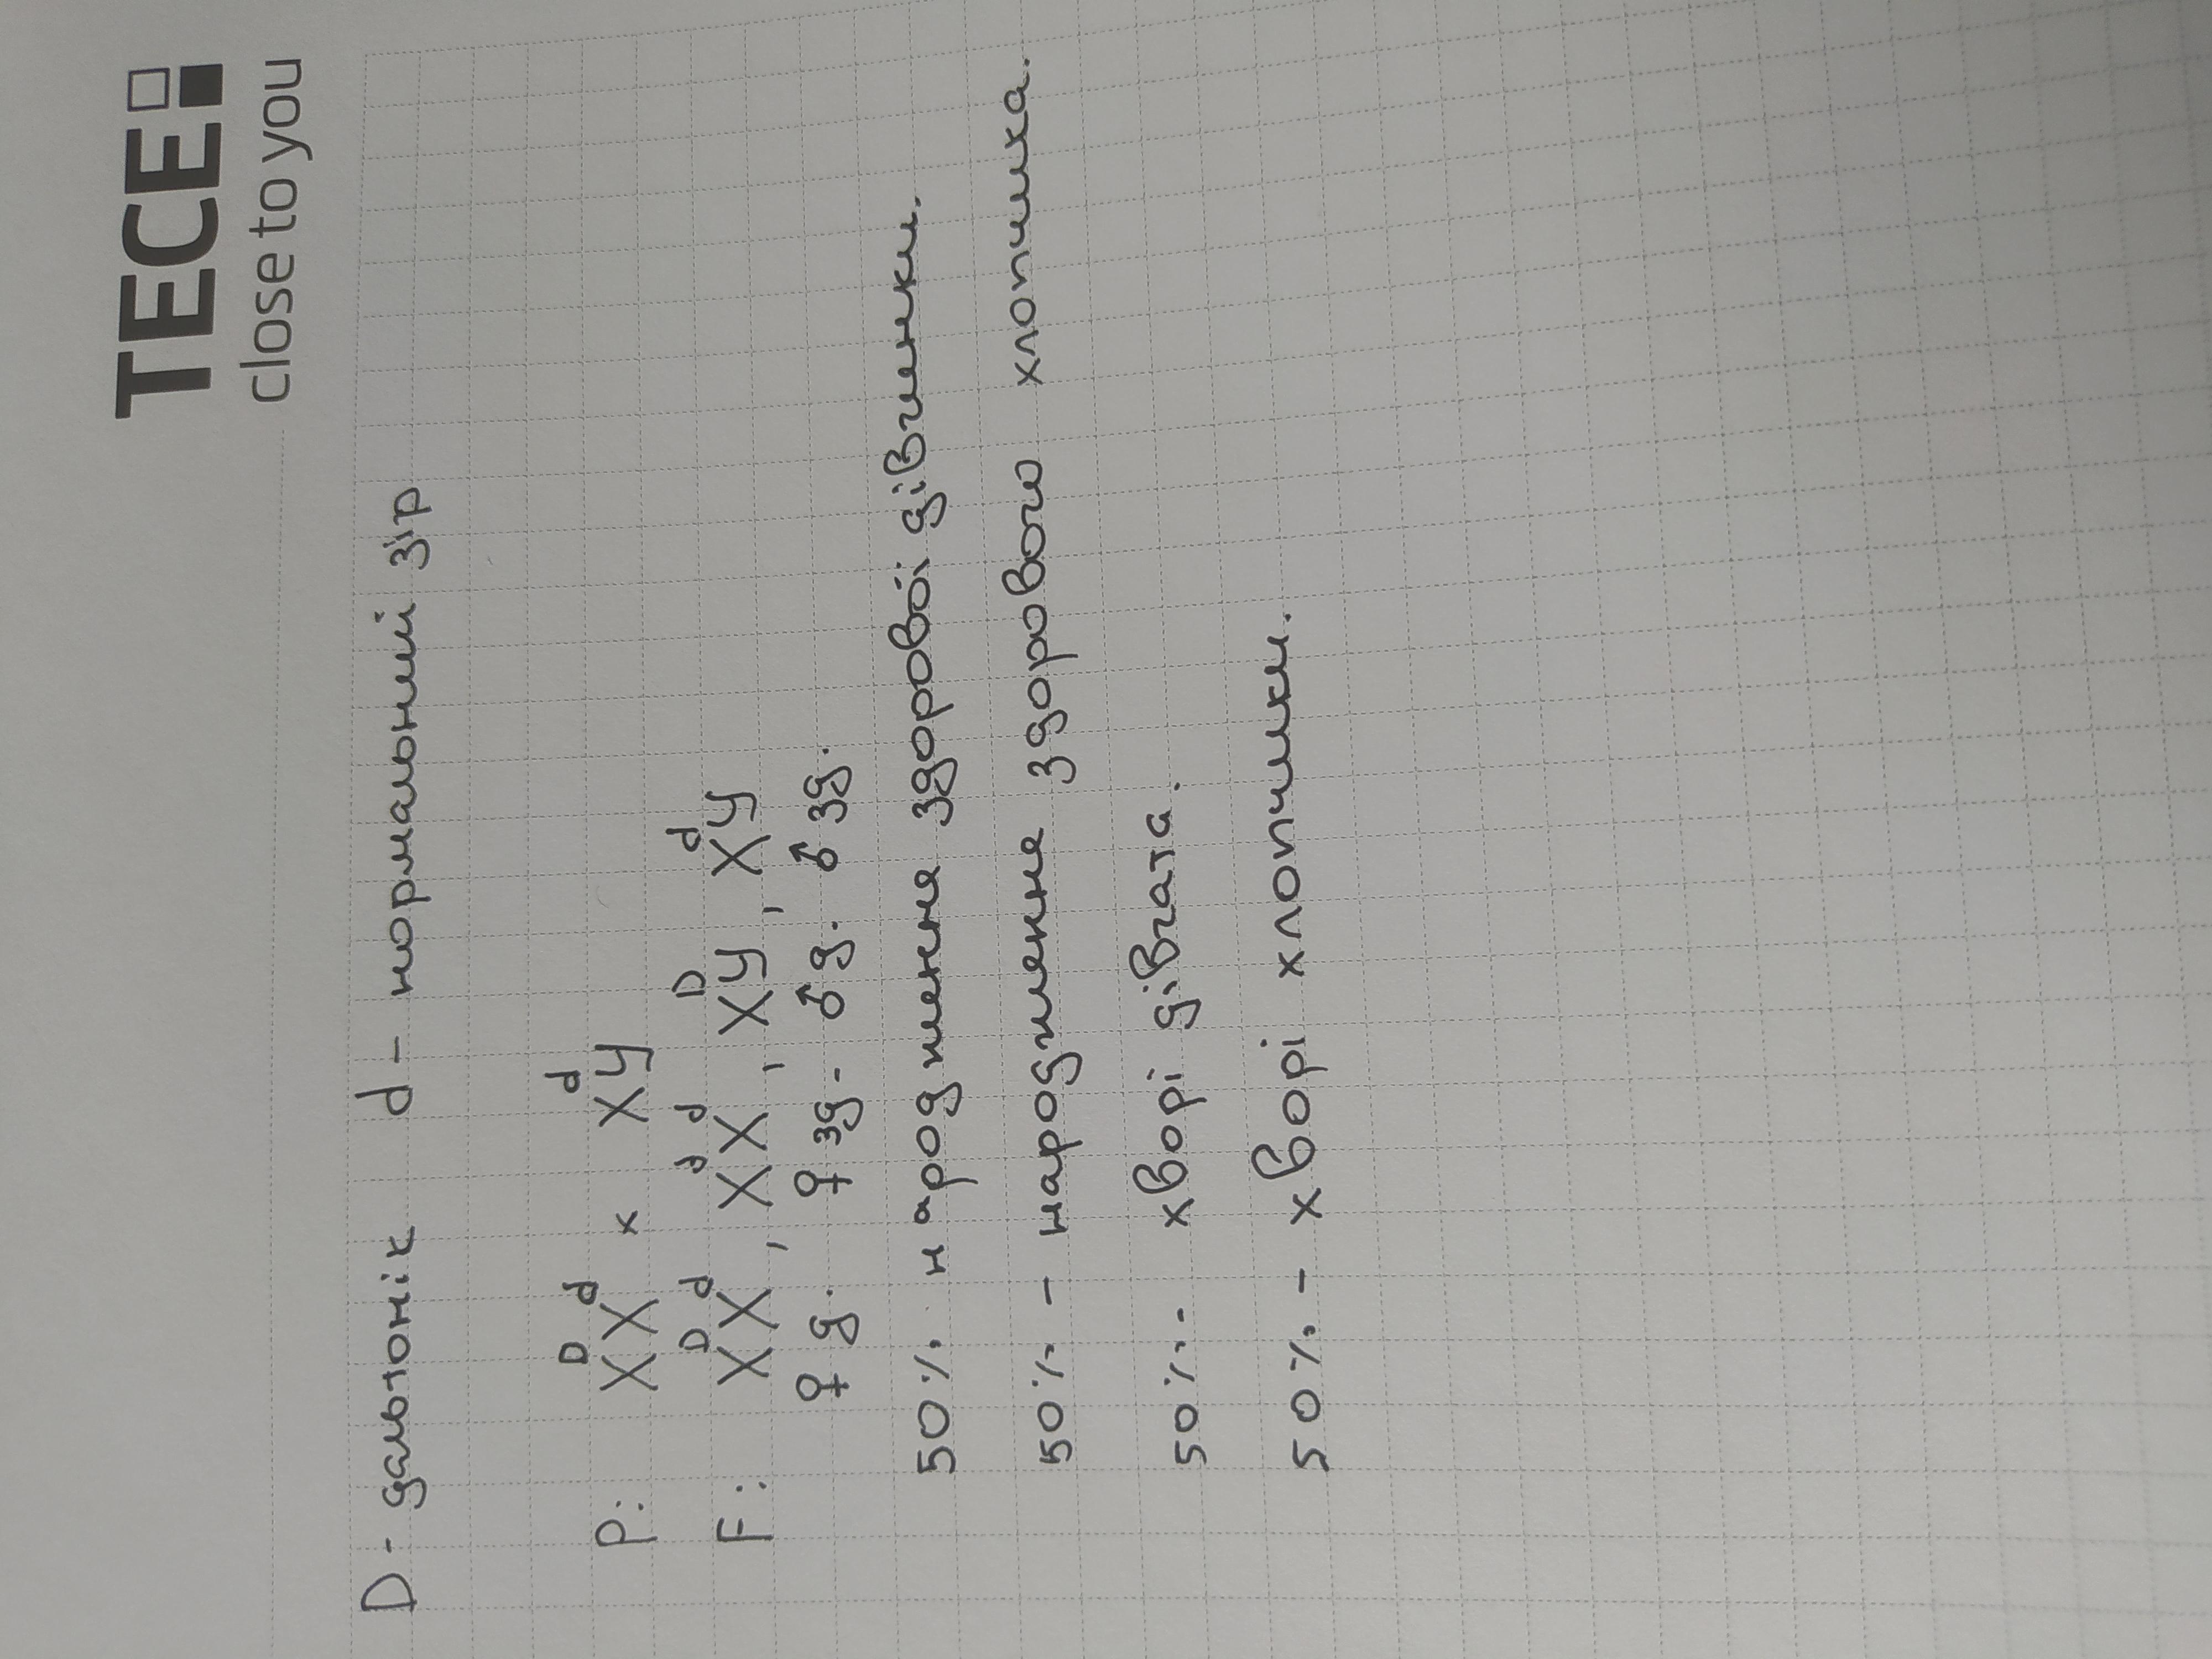 TECE
close to you
D - дальтонік d - нормальний зір
P: X^D X^d × X^d Y
F: X^D X^d, X^d X^d, X^D Y, X^d Y
♀ д. ♀ зд. ♂ д. ♂ зд.
50% народження здорової дівчинки.
50% - народження здорового хлопчика.
50% - хворі дівчата.
50% - хворі хлопчики.